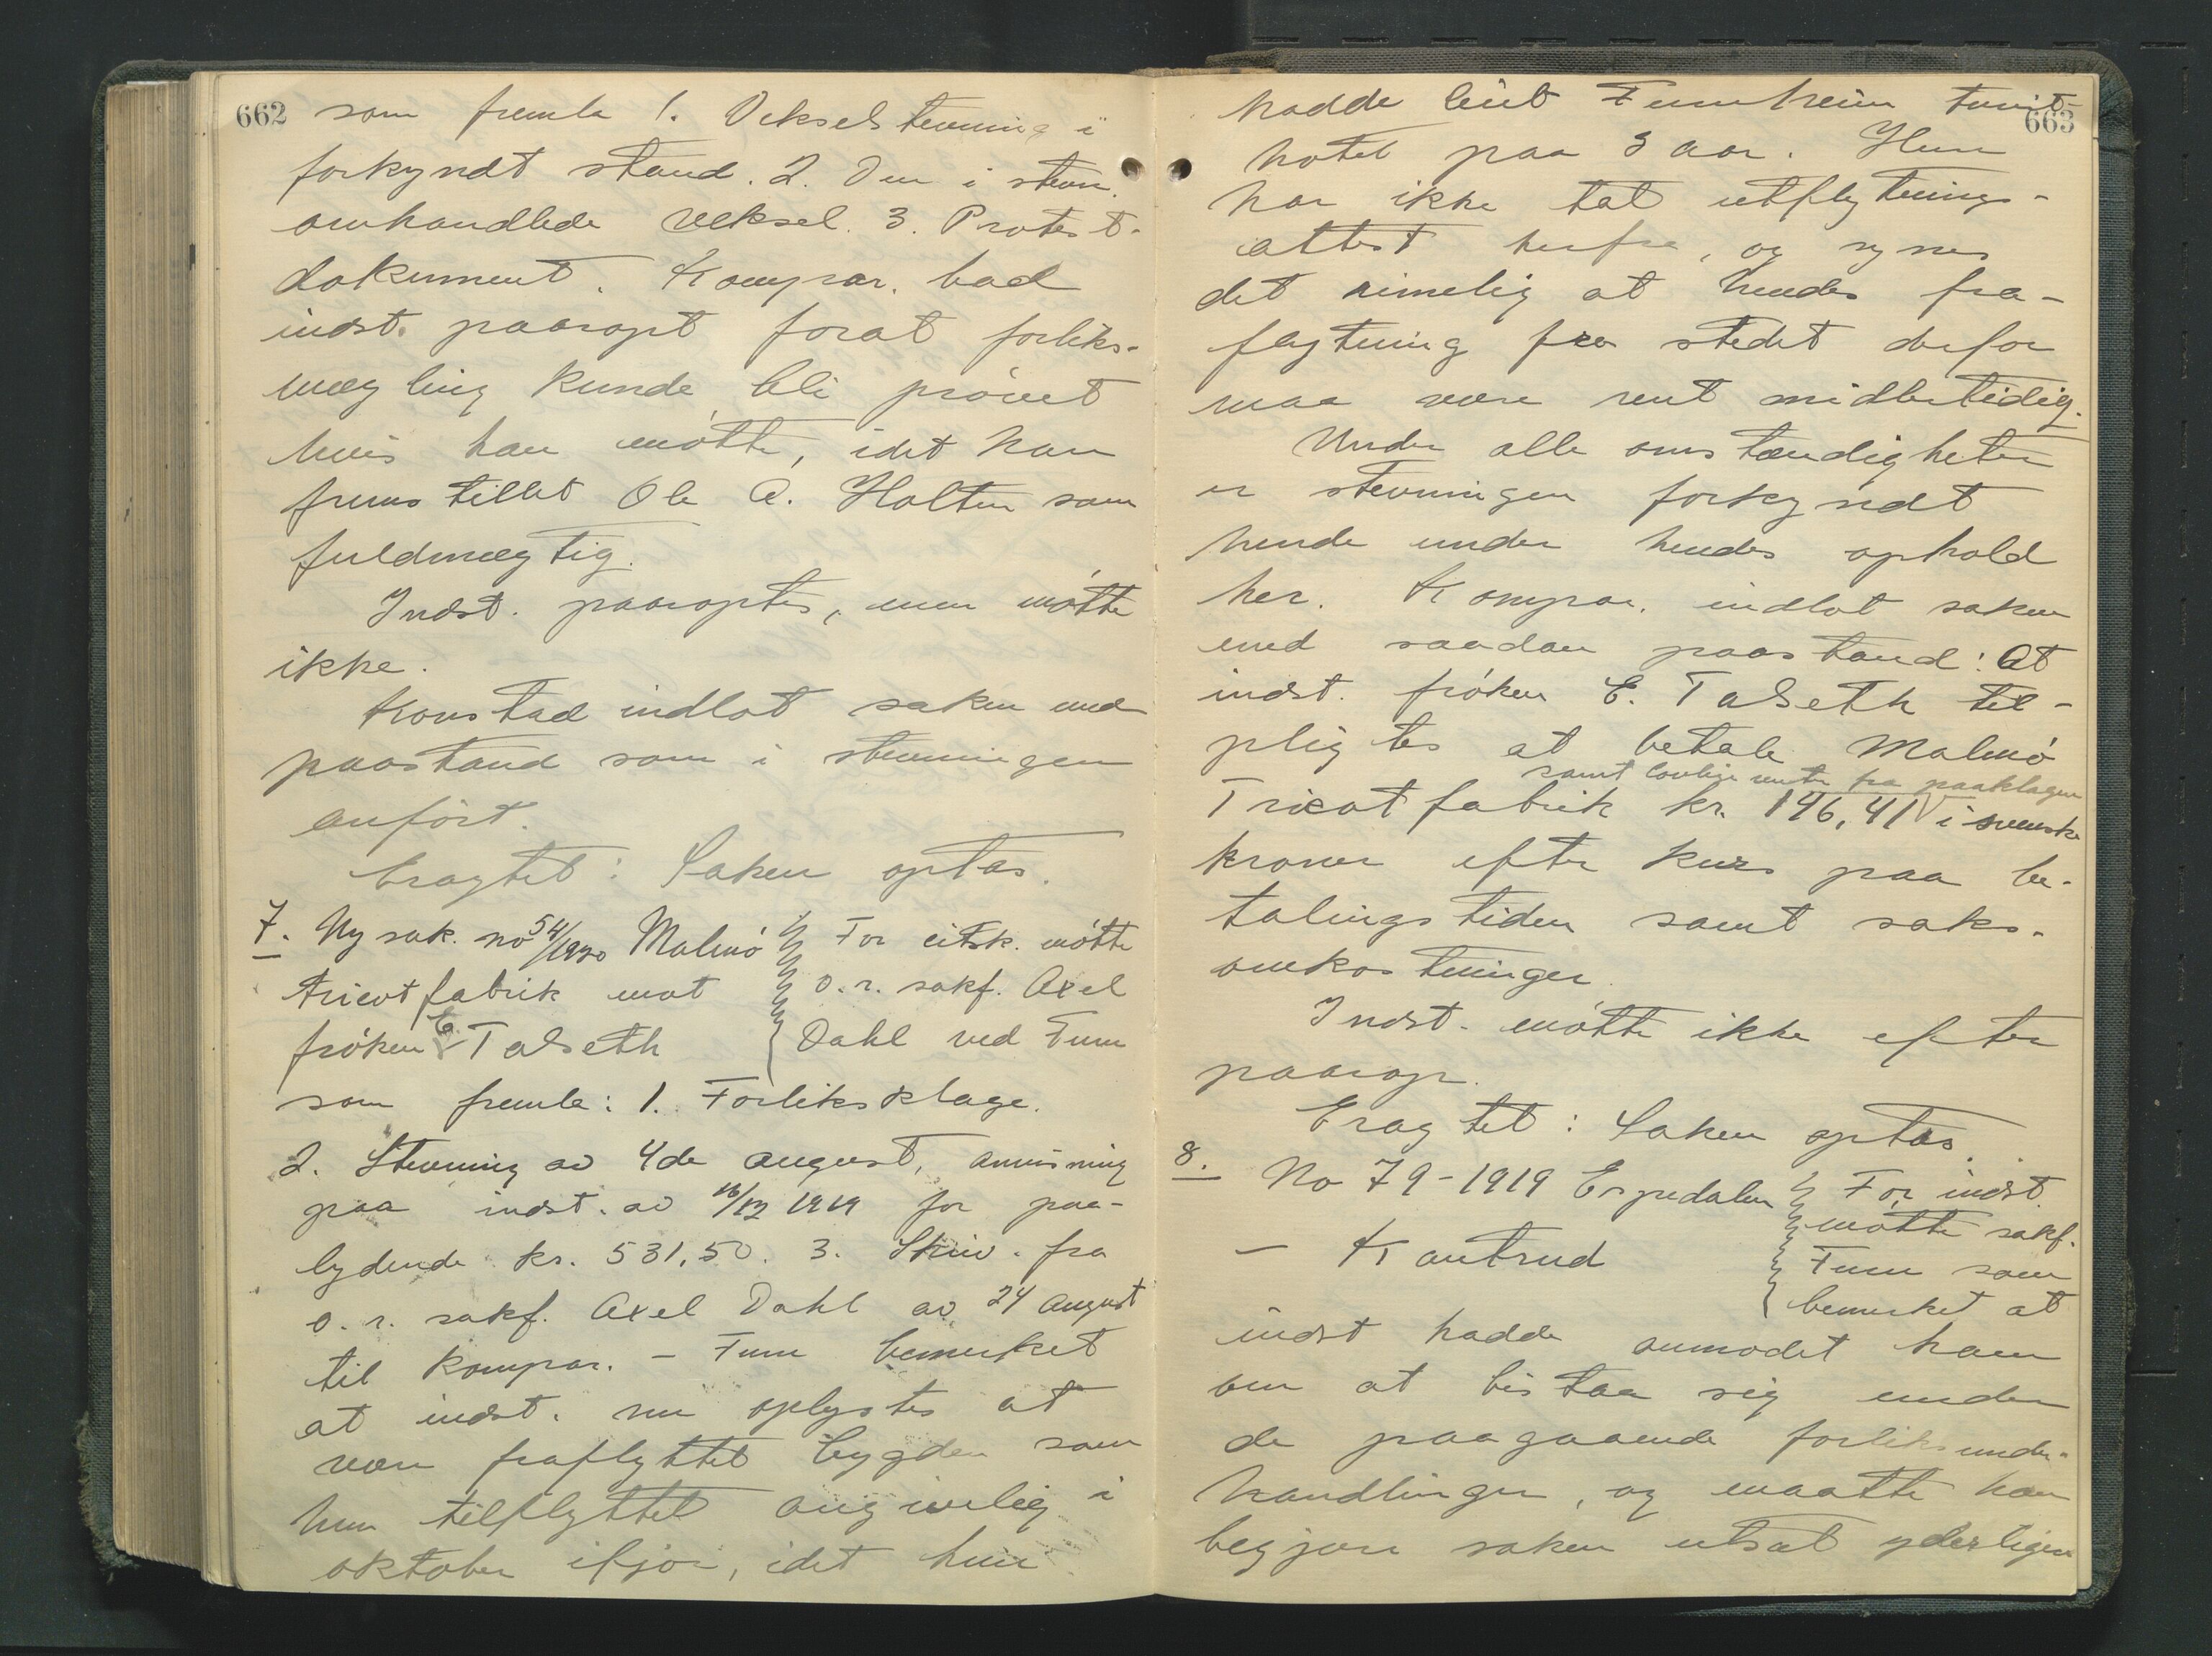 662
som fremla 1. Vekselstevning i
forkyndt stand. 2. Den i stevn.
omhandlede veksel. 3. Protest-
dokument. Kompar. bad
indst. paaropt forat forliks-
mægling kunde bli prövet
hvis han mötte, idet han
fremstillet Ole A. Holten som
fuldmægtig.
Indst. paaroptes, men mötte
ikke.
Konstad indlot saken med
paastand som i stevningen
anfört.
Eragtet: Saken optas.
7. Ny sak. no 54/1920 Malmö
Tricotfabrik mot
fröken E. Talseth
For citsk. mötte
o. r. sakf. Axel
Dahl ved Tum
som fremla: 1. Forliksklage.
2. Stevning av 4de august, anvisning
paa indst. av 16/12 1919 for paa-
lydende kr. 531,50. 3. Skriv. fra
o. r. sakf. Axel Dahl av 24 august
til kompar. - Tum bemerket
at indst. nu oplystes at
være fraflyttet bygden som
hun tilflyttet angivelig i
oktober ifjor, idet hun
663
hadde leiet Furuheim turist-
hotel paa 3 aar. Hun
har ikke tat utflytnings-
attest herfra, og synes
det rimelig at hendes fra-
flytning fra stedet derfor
maa være rent midlertidig.
Under alle omstændigheter
er stevningen forkyndt
hende under hendes ophold
her. Kompar. indlot saken
med saadan paastand: At
indst. fröken E. Talseth til-
pligtes at betale Malmö
samt lovlige renter fra paaklagen
Tricotfabrik kr. 196,41 i svenske
kroner efter kurs paa be-
talingstiden samt saks-
omkostninger.
Indst. mötte ikke efter
paarop.
Eragtet: Saken optas.
8. No 79-1919 Espedalen
- Kantrud
For indst.
mötte sakf.
Tum som
bemerket at
indst hadde anmodet ham
om at bistaa sig under
de paagaaende forliksunder-
handlinger, og maatte han
begjære saken utsat yderligere